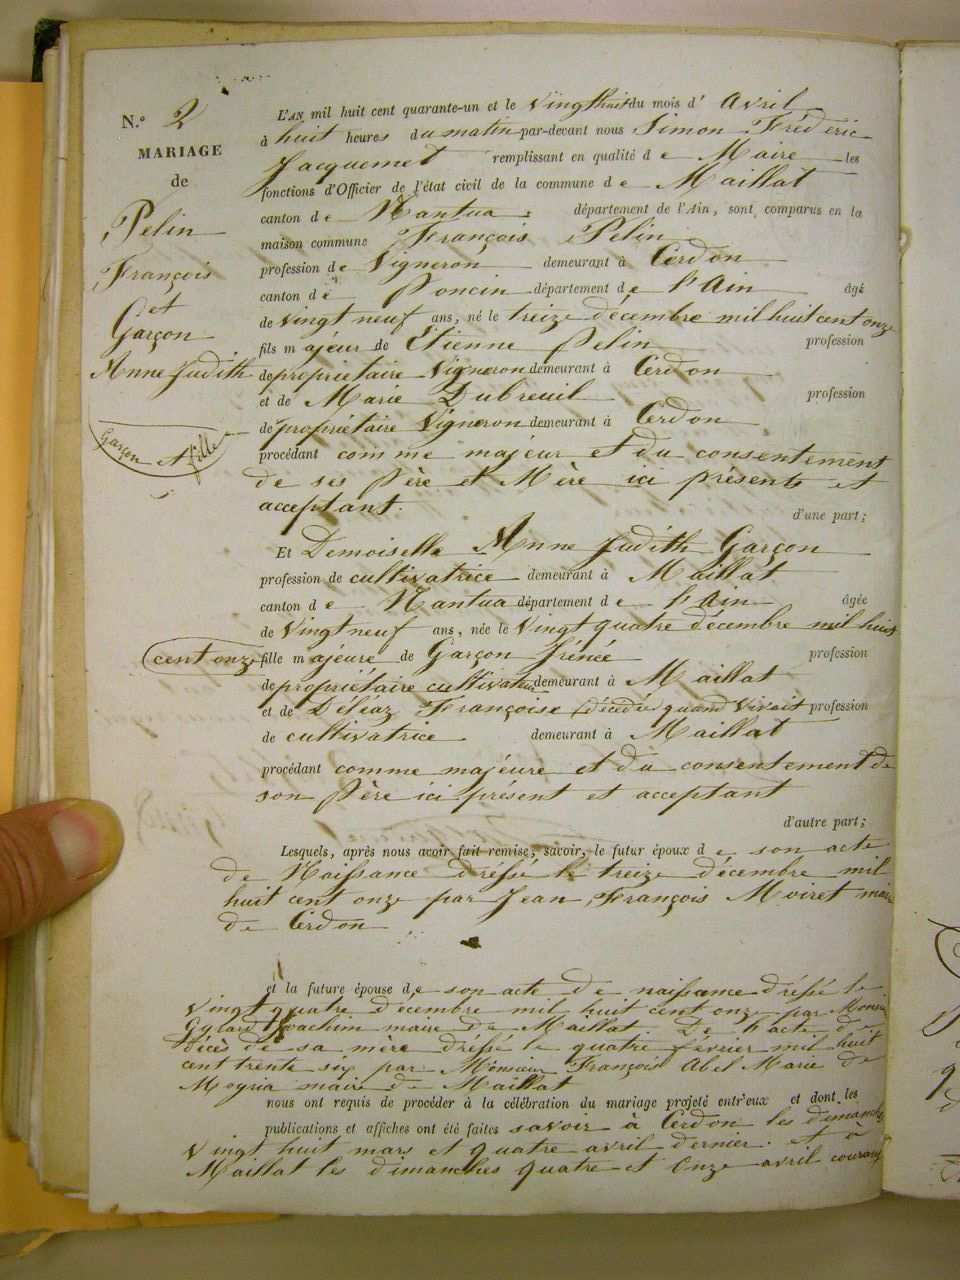 N.° 2
MARIAGE
de
Pelin
François
et
Garçon
Anne Judith
Garçon et fille
L'AN mil huit cent quarante-un et le vingt huit du mois d' Avril
à huit heures du matin par-devant nous Simon Fréderic
Jacquemet remplissant en qualité de Maire les
fonctions d'Officier de l'état civil de la commune de Maillat
canton de Nantua département de l'Ain, sont comparus en la
maison commune François Pelin
profession de Vigneron demeurant à Cerdon
canton de Poncin département de l'Ain âgé
de vingt neuf ans, né le treize décembre mil huit cent onze
fils majeur de Etienne Pelin profession
de propriétaire Vigneron demeurant à Cerdon
et de Marie Dubreuil profession
de propriétaire Vigneron demeurant à Cerdon
procédant comme majeur et du consentement
de ses Père et Mère ici présents et
acceptant.
d'une part;
Et Demoiselle Anne Judith Garçon
profession de cultivatrice demeurant à Maillat
canton de Nantua département de l'Ain âgée
de Vingt neuf ans, née le Vingt quatre décembre mil huit
cent onze fille majeure de Garçon Jrénée profession
de propriétaire cultivateur demeurant à Maillat
et de Déléaz Françoise décédée quand vivait profession
de cultivatrice demeurant à Maillat
procédant comme majeure et du consentement de
son Père ici présent et acceptant
d'autre part;
Lesquels, après nous avoir fait remise, savoir, le futur époux de son acte
de Naissance dréssé le treize décembre mil
huit cent onze par Jean François Moiret maire
de Cerdon
et la future épouse de son acte de naissance dréssé le
Vingt quatre décembre mil huit cent onze par Monsieur
Joachim maire de Maillat. De l'acte de
décès de sa mère dréssé le quatre février mil huit
cent trente six par Monsieur François Abel Marie de
Moyria maire de Maillat
nous ont requis de procéder à la célébration du mariage projeté entr'eux et dont les
publications et affiches ont été faites savoir à Cerdon les dimanches
Vingt huit mars et quatre avril dernier. et à
Maillat les dimanches quatre et onze avril courant